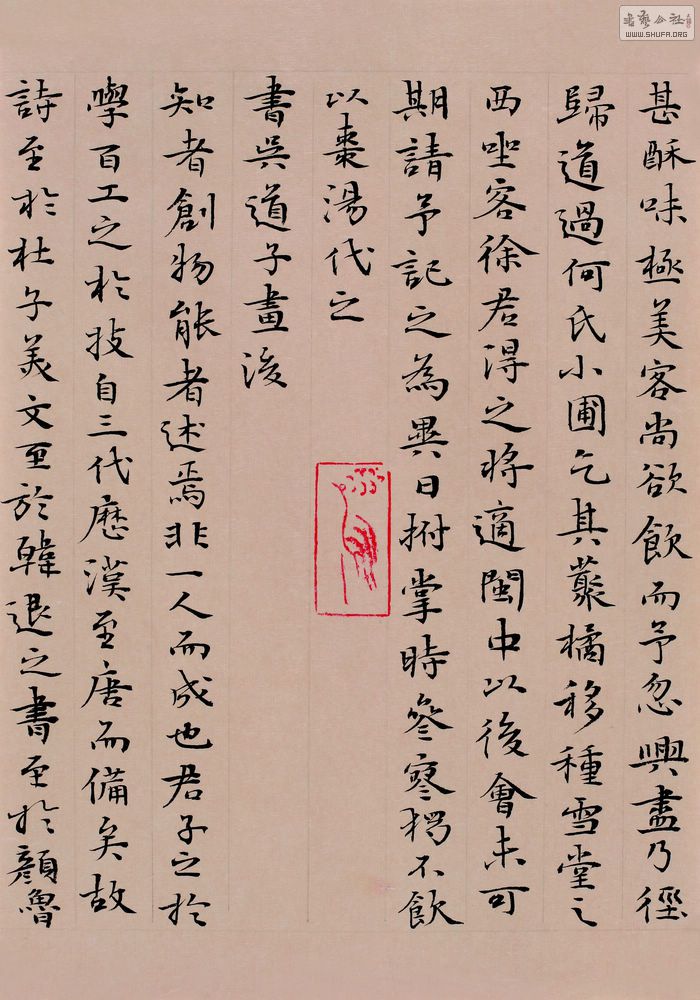 甚酥味極美客尚欲飲而予忽興盡乃徑
歸道過何氏小圃乞其藂橘移種雪堂之
西坐客徐君得之將適閩中以後會未可
期請予記之為異日拊掌時參寥獨不飲
以棗湯代之
書吳道子畫後
知者創物能者述焉非一人而成也君子之於
學百工之於技自三代歷漢至唐而備矣故
詩至於杜子美文至於韓退之書至於顏魯
書藝公社
WWW.SHUFA.ORG